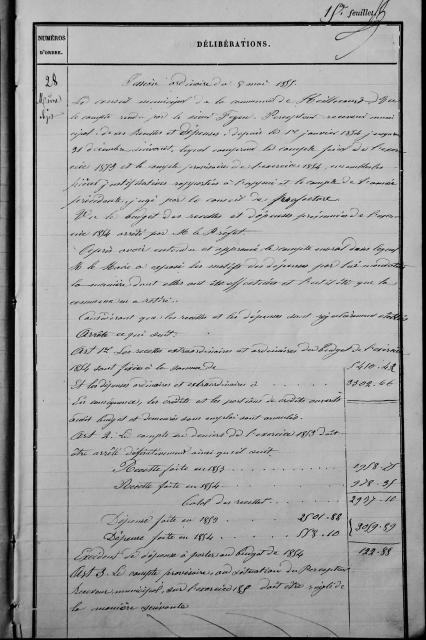 15e feuillet
NUMÉROS
D'ORDRE.
DÉLIBÉRATIONS.
28
Session ordinaire du 8 mai 1855.
Le conseil municipal de la commune de Vu
le compte rendu par le sieur Percepteur receveur muni
cipal de ses recettes et dépenses depuis le 1er janvier 1854 jusqu'au
31 décembre suivant, lequel comprend le compte final de l'exer
cice 1853 et le compte provisoire de l'exercice 1854, ensemble les
pièces justificatives rapportées à l'appui et le compte de l'année
précédente, jugé par le conseil de préfecture
Vu le budget des recettes et dépenses présumées de l'exer-
cice 1854 arrêté par M. le Préfet.
Après avoir entendu et approuvé le compte moral dans lequel
M. le Maire a exposé les motifs des dépenses par lui mandatées
la manière dont elles ont été effectuées et l'utilité que la
commune en a retiré.
Considérant que les recettes et les dépenses sont régulièrement établies
Arrête ce qui suit:
Art 1er. Les recettes extraordinaires et ordinaires du budget de l'exercice
1854 sont fixées à la somme de 5410-42
Et les dépenses ordinaires et extraordinaires à 3302-66
En conséquence, les crédits et les portions de crédits ouverts
audit budget et demeurés sans emploi sont annulés.
Art 2. Le compte en deniers de l'exercice 1853 doit
être arrêté définitivement ainsi qu'il suit
Recette faite en 1853 1958-75
Recette faite en 1854 978-35
Total des recettes 2937-10
Dépense faite en 1853 2501-88
Dépense faite en 1854 558-10 3059-89
Excédent de dépense à porter au budget de 1854 122-88
Art 3. Le compte provisoire, ou situation du Percepteur
Receveur municipal, sur l'exercice doit être réglé de
la manière suivante